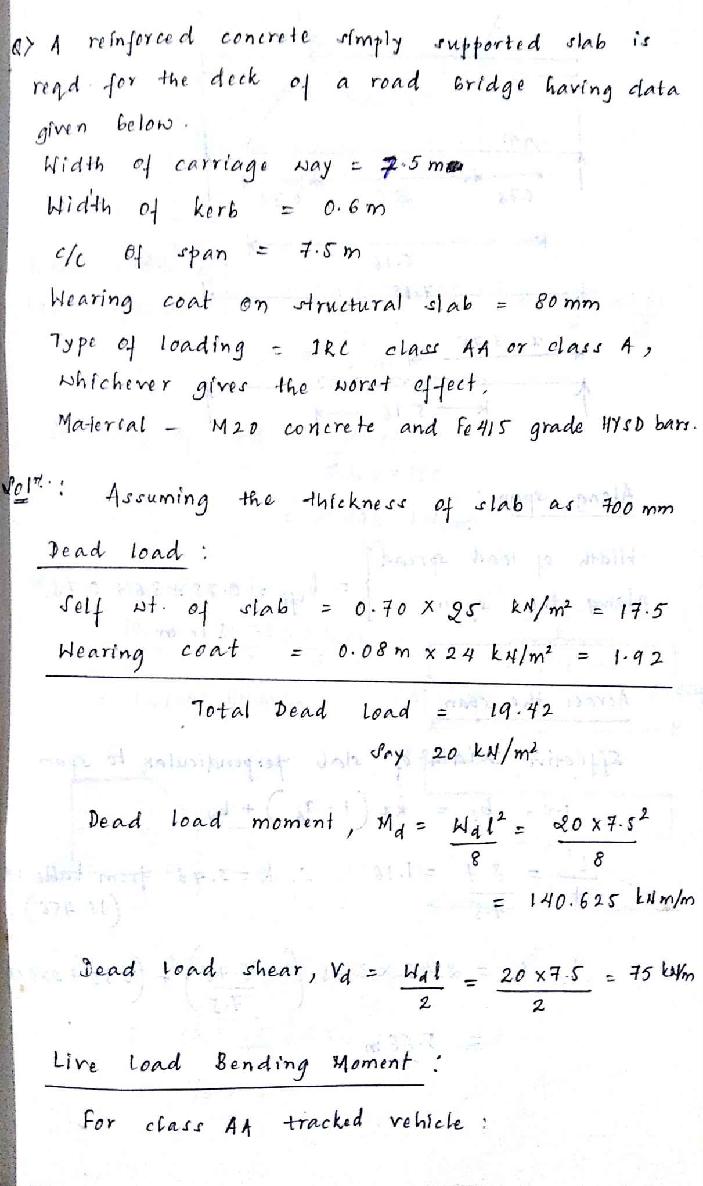 Q> A reinforced concrete simply supported slab is
reqd for the deck of a road bridge having data
given below.
Width of carriage way = 7.5 m
Width of kerb = 0.6 m
c/c of span = 7.5 m
Wearing coat on structural slab = 80 mm
Type of loading = IRC class AA or class A,
whichever gives the worst effect,
Material - M20 concrete and Fe 415 grade HYSD bars.
Solⁿ: Assuming the thickness of slab as 700 mm
Dead load :
Self wt. of slab = 0.70 x 25 kN/m² = 17.5
Wearing coat = 0.08 m x 24 kN/m² = 1.92
Total Dead Load = 19.42
Say 20 kN/m²
Dead load moment, Md = Wdl²/8 = 20 x 7.5²/8
= 140.625 kNm/m
Dead load shear, Vd = Wdl/2 = 20 x 7.5/2 = 75 kN/m
Live Load Bending Moment :
For class AA tracked vehicle :